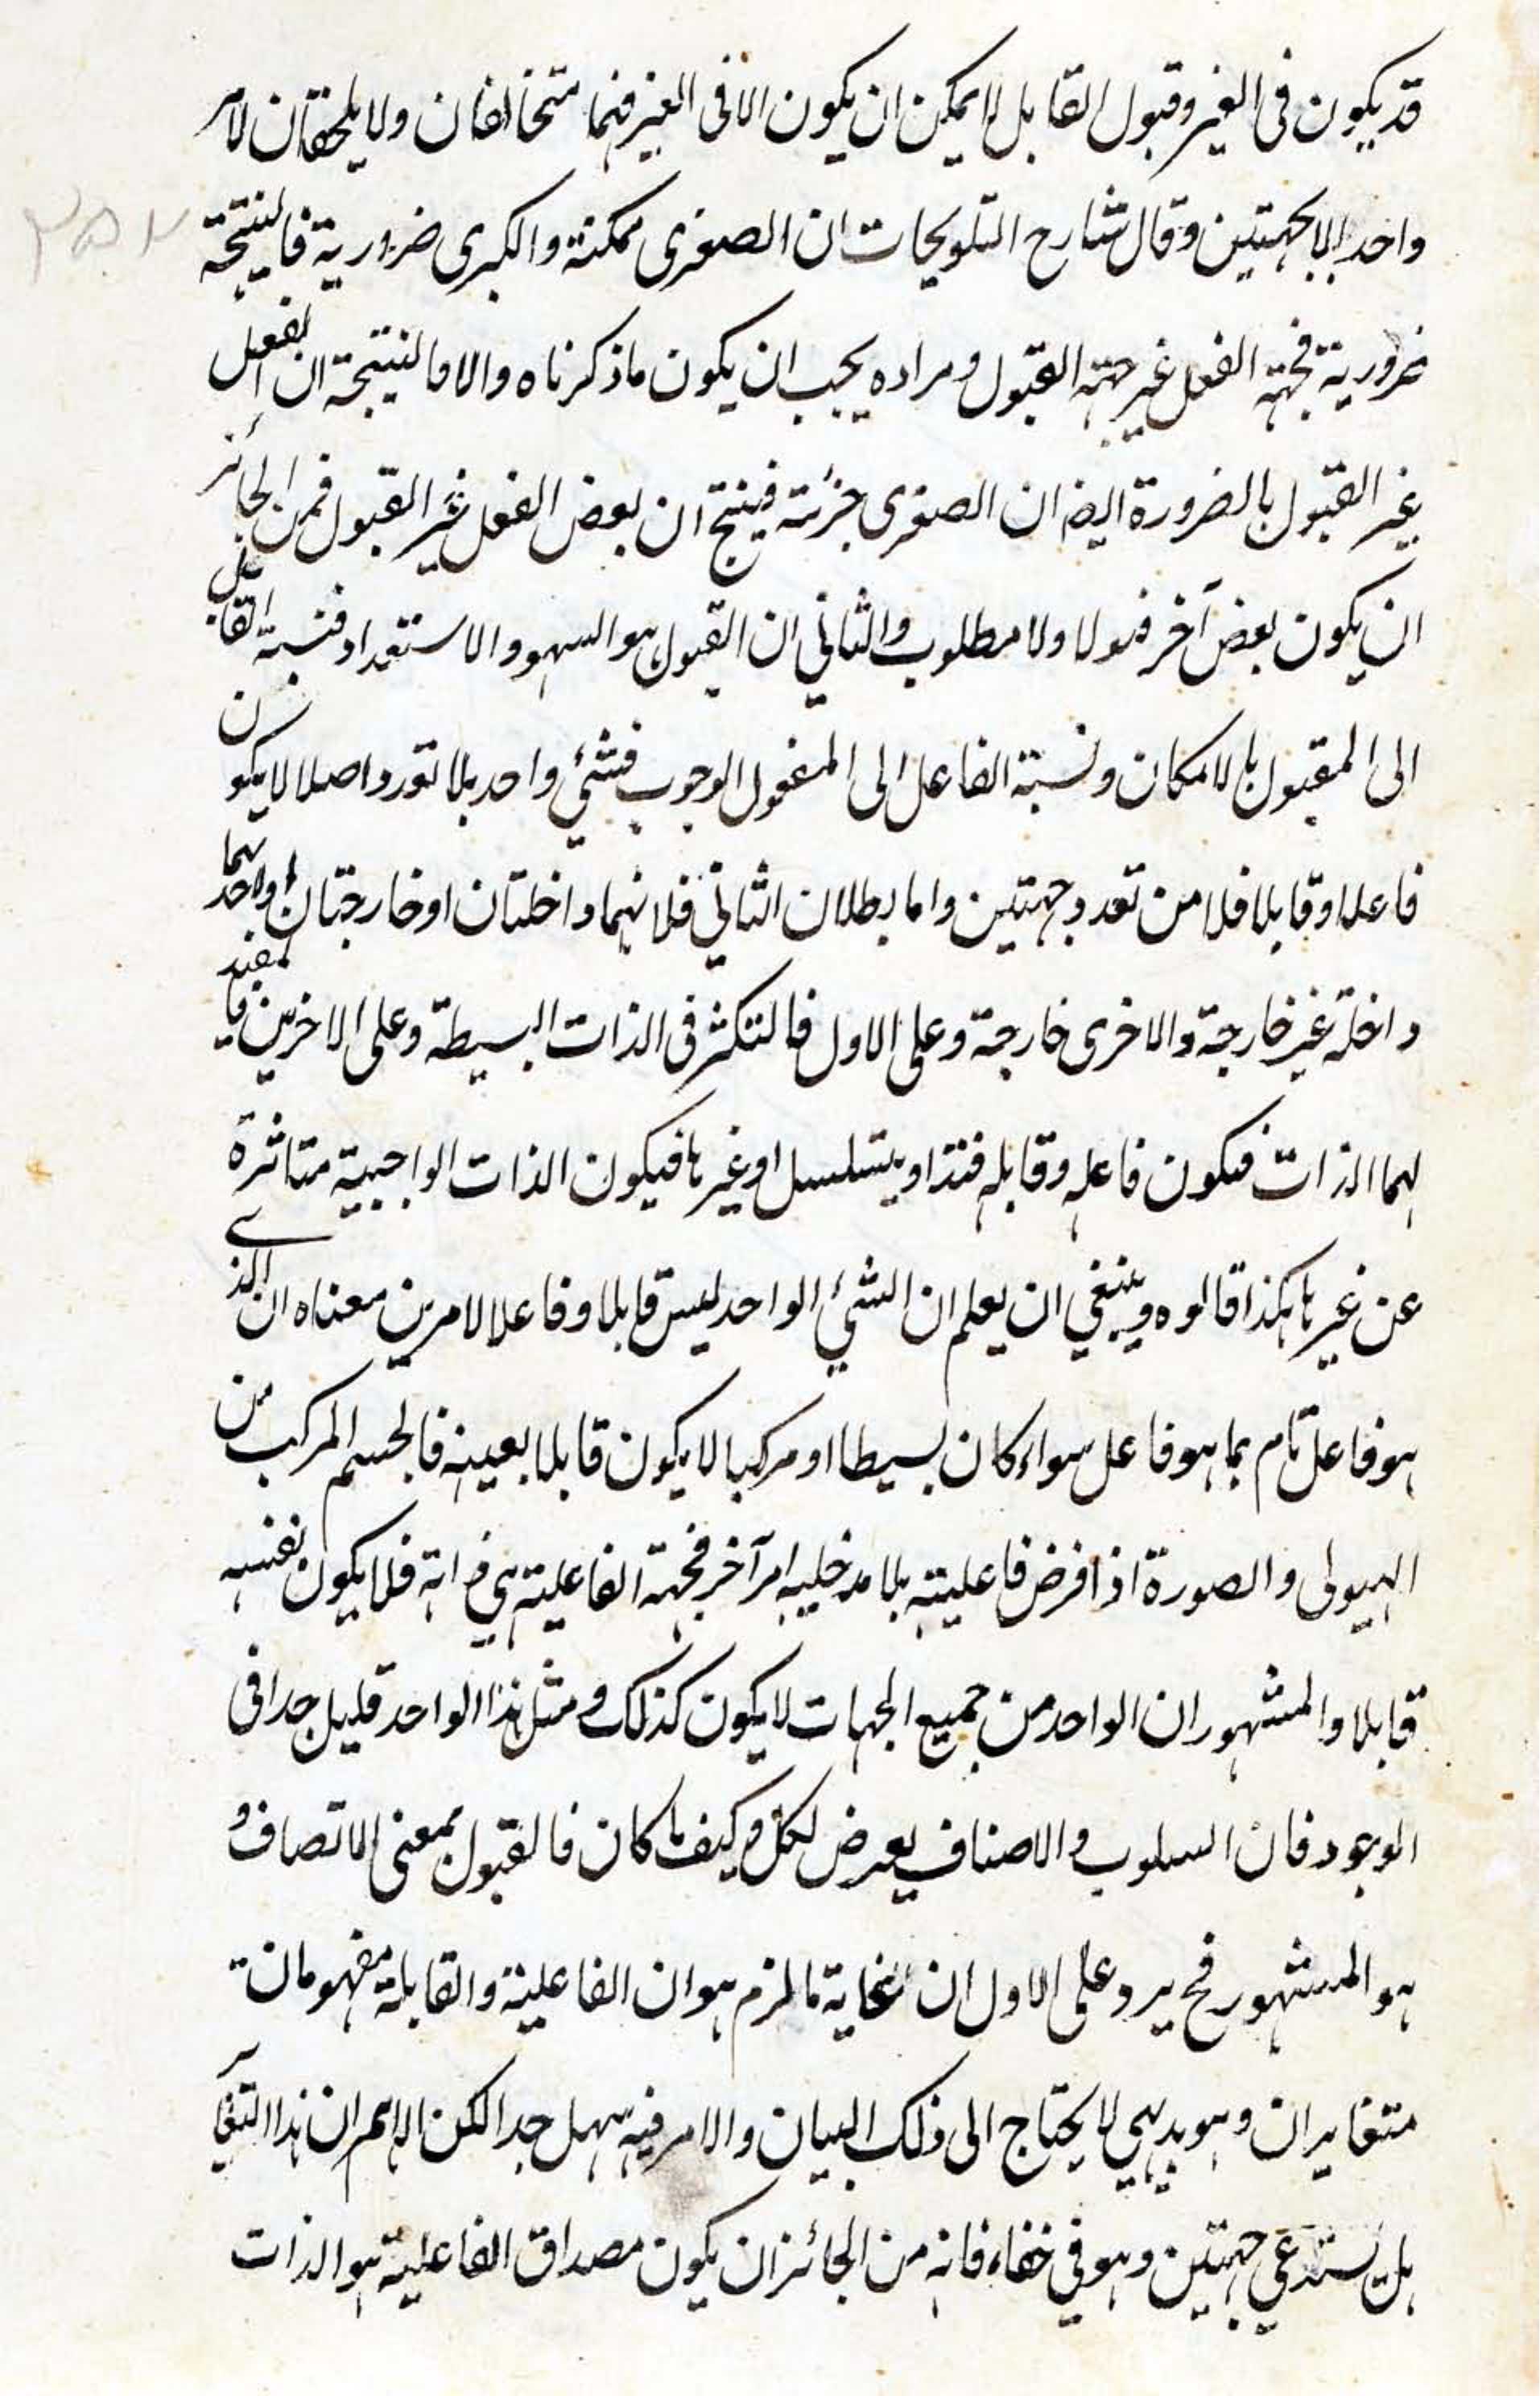 قد يكون فى الغير وقبول القابل لا يمكن ان يكون الا فى الغير فهما متخالفان ولا يلحقان لامر
واحد الا بجهتين وقال شارح التلويحات ان الصغرى ممكنة والكبرى ضرورية فالنتيجة
ضرورية فجهة الفعل غير جهة القبول ومراده يجب ان يكون ماذكرناه والا فالنتيجة ان الفعل
غير القبول بالضرورة ايضا ان الصغرى جزئية فينتج ان بعض الفعل غير القبول فمن الجائز
ان يكون بعض آخر قبولا ولا مطلوب والثاني ان القبول هو السهو والاستعداد فنسبة القابل
الى المقبول بالامكان ونسبة الفاعل الى المفعول الوجوب فشئي واحد بلا تعدد اصلا لا يكون
فاعلا وقابلا فلا من تعدد جهتين واما بطلان الثاني فلانهما داخلتان او خارجتان او احدهما
داخلة غير خارجة والاخرى خارجة وعلى الاول فالتكثر فى الذات البسيطة وعلى الاخرين فالمفيد
لهما الذات فيكون فاعله وقابله فتداو يتسلسل او غيرها فيكون الذات الواجبية متاثرة
عن غيرها هكذا قالوه وينبغي ان يعلم ان الشئي الواحد ليس قابلا وفاعلا لامرين معناه ان الذي
هو فاعل تام بما هو فاعل سواء كان بسيطا او مركبا لا يكون قابلا بعينه فالجسم المركب من
الهيولى والصورة اذا فرض فاعليته بلا مدخليه امر آخر فجهة الفاعلية هي ذاته فلا يكون بنفسه
قابلا والمشهور ان الواحد من جميع الجهات لا يكون كذلك ومثل هذا الواحد قليل جدا فى
الوجود فان السلوب والاصناف يعرض لكل وكيف ما كان فالقبول بمعنى الاتصاف و
هو المشهور فح يرد على الاول ان غاية ما لزم هو ان الفاعلية والقابلة مفهومان
متغايران وهو بديهي لا يحتاج الى ذلك البيان والامر فيه سهل جدا لكن الاهم ان هذا التغاير
هل يستدعي جهتين وهو في خفاء فانه من الجائز ان يكون مصداق الفاعلية هو الذات